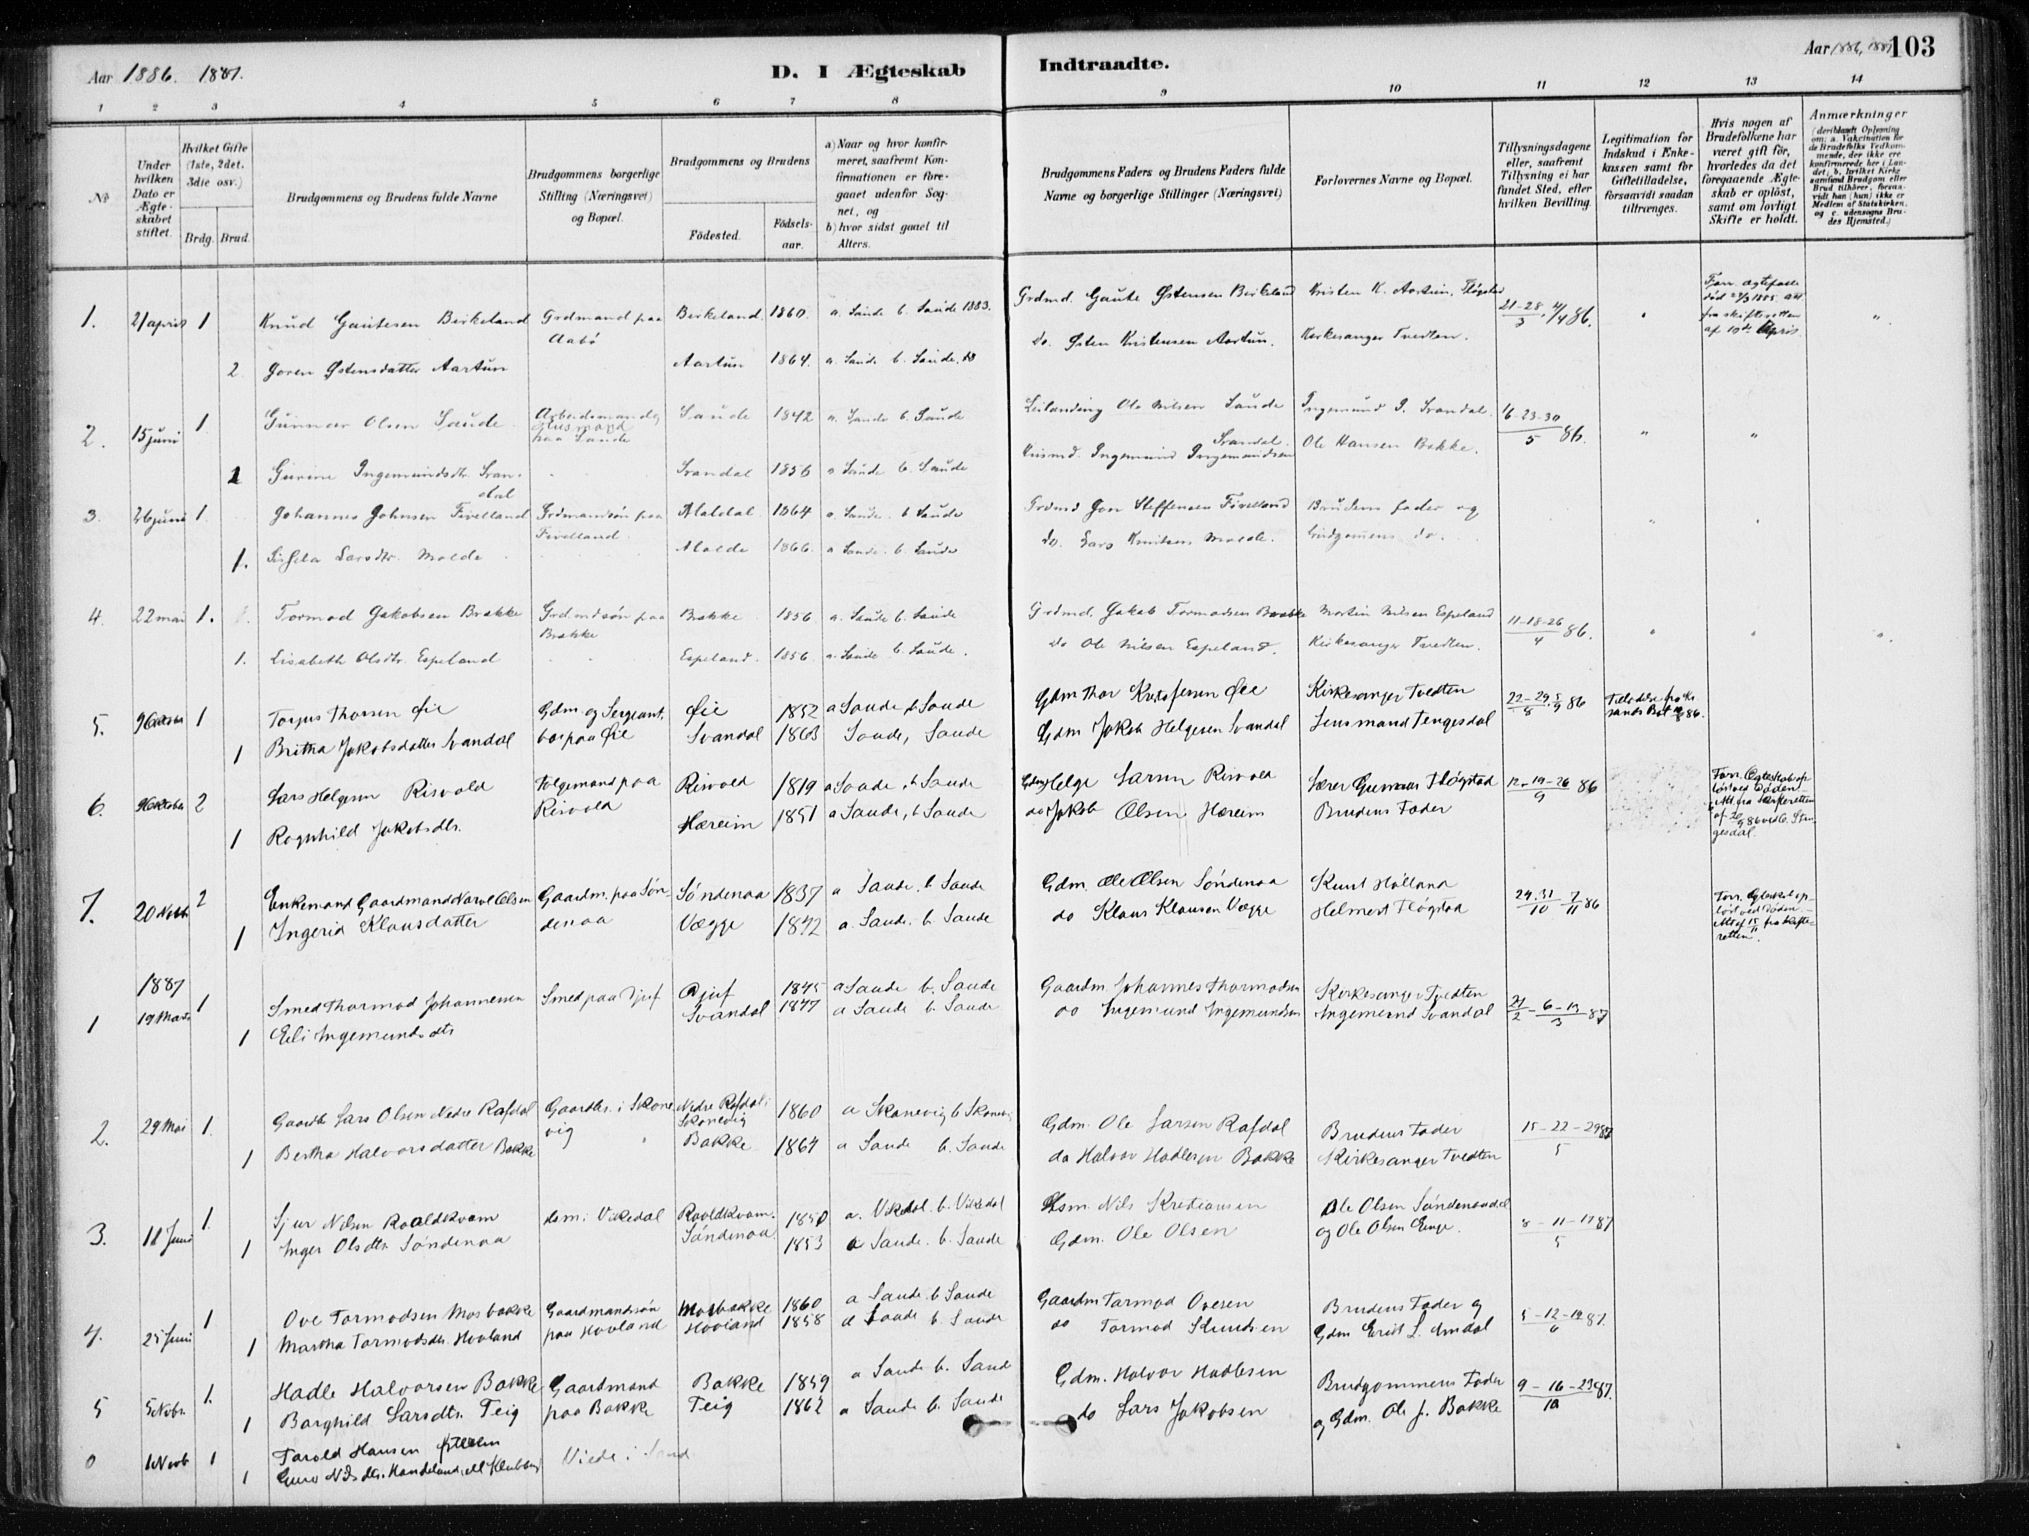 Aar 1886. 1887.
D. I Ægteskab
Indtraadte.
Aar 1886, 1887
103
1 2 3 4 5 6 7 8 9 10 11 12 13 14
No
Under hvilken Dato er Ægteskabet stiftet.
Hvilket Gifte (1ste, 2det, 3die osv.)
Brdg. Brud.
Brudgommens og Brudens fulde Navne
Brudgommens borgerlige Stilling (Næringsvei) og Bopæl.
Brudgommens og Brudens
Fødested.
Fødselsaar.
a) Naar og hvor konfirmeret, saafremt Konfirmationen er foregaaet udenfor Sognet, og
b) hvor sidst gaaet til Alters.
Brudgommens Faders og Brudens Faders fulde Navne og borgerlige Stillinger (Næringsvei)
Forlovernes Navne og Bopæl.
Tillysningsdagene eller, saafremt Tillysning ei har fundet Sted, efter hvilken Bevilling.
Legitimation for Indskud i Enkekassen samt for Giftetilladelse, forsaavidt saadan tiltrænges.
Hvis nogen af Brudefolkene har været gift før, hvorledes da det foregaaende Ægteskab er opløst, samt om lovligt Skifte er holdt.
Anmærkninger
(deriblandt Oplysning om: a. Vakcination for de Brudefolks Vedkommende, der ikke ere konfirmerede her i Landet; b. hvilket Kirkesamfund Brudgom eller Brud tilhører, forsaavidt han (hun) ikke er Medlem af Statskirken, og c. udensogns Brudes Hjemsted.)
1. 21 april 1 Knud Gautesen Birkeland Grdmand paa Aabø Birkeland. 1860. a. Saude b. Saude 1883. Grdmd. Gaute Østensen Birkeland Kristen K. Aartun, Fløgstad 21-28/3 4/4 86.
2. Goren Østensdatter Aartun Aartun 1864. a. Saude b. Saude. do. Østen Kristensen Aartun. Kirkesanger Tvedten.
2. 15 juni 1 Gunnar Olsen Saude Arbeidsmand og Husmand paa Saude Saude 1842 a. Saude b. Saude Leilænding Ole Nilsen Saude Ingemund I. Svandal. 16-23-30/5 86.
1 Gurine Ingemundsdtr. Svandal Svandal 1856 a Saude b. Saude Husmd. Ingemund Ingemundsen Svandal. Ole Hansen Bakke.
3. 26 juni 1. Johannes Johnsen Fivelland Grdmandsøn paa Fivelland. Maldal 1864 a. Saude. b Saude Grdmd Jon Steffensen Fivelland Brudens fader og
1. Larsdtr. Molde Molde 1866. a Saude. b. Saude do. Lars Knutsen Molde. brudgomens do.
4. 22 mai 1. Tormod Jakobsen Brakke Grdmdsøn paa Brakke Brakke 1856 a. Saude b. Saude Grdmd. Jakob Tormodsen Brakke Martin Nilsen Espeland 11-18-26/4 86.
1. Lisabeth Olsdtr. Espeland Espeland. 1856. a. Saude b. Saude. do Ole Nilsen Espeland. Kirkesanger Tvedten.
5. 9 1 Torjus Thorsen Øie Gdm og Sergeant, bor paa Øie Øie 1852 a Saude, b Saude Gdm Thor Øie Kirkesanger Tvedten 22-29/8 5/9 86
1 Britha Jakobsdatter Svandal Svandal 1863 Saude, Saude Gdm Jakob Helgesen Svandal Lensmand Tengesdal
6. 2 Lars Helgesen Risvold Folgemand paa Risvold Risvold 1819 a Saude, b Saude Gdm Helge Larsen Risvold Lærer Gunnar Fløgstad 12-19-26/9 86
1 Ragnhild Jakobsdtr. Hæreim 1851 a Saude, b Saude do Jakob Olsen Hæreim Brudens Fader
7. 20 Novb. 2 Enkemand Gaardmand Olsen Gaardm. paa Søndenaa Søndenaa 1837 a Saude, b Saude Gdm. Ole Olsen Søndenaa Knut Hølland 24-31/10 7/11 86
1 Ingerid Klausdatter Vægge 1842 a. Saude. b. Saude do Klaus Klausen Vægge Helmest Fløgstad
1887
1 19 Marts 1 Smed Thormod Johannesen Smed paa 1845 a Saude b. Saude Gaardm. Johannes Thormodsen Kirkesanger Tvedten 27/2-6-13/3 87
1 Eli Ingemundsdtr Svandal 1847 a Saude b. Saude do Ingemund Ingemundsen Ingemund Svandal
2. 29 Mai 1. Gaardb Lars Olsen Nedre Rafdal Gaardbr. i Skonevig Nedre Rafdal i Skonevig 1860 a Skonevig b Skonevig Gdm. Ole Larsen Rafdal Brudens Fader 15-22-29/5 87
1 Bertha Halvorsdatter Bakke Bakke 1864 a Saude b. Saude do Halvor Hadlesen Bakke Kirkesanger Tvedten
3. 11 Juni 1. Sjur Nilsen Roaldkvam i Vikedal Roaldkvam. 1850 a. Vikedal. b. Vikedal Nils Kristiansen Ole Olsen Søndenaadal 87
1 Inger Olsdtr Søndenaa Søndenaa. 1853 a Saude. b. Saude Gdm. Ole Olsen og Ole Olsen
4. 25 Juni 1 Ove Tormodsen Mosbakke Gaardmandsøn paa Hovland Mosbakke 1860 a Saude b Saude Gaardm Tormod Ovesen Brudens Fader og 5-12-19/6 87.
1 Martha Tormodsdtr. Hovland Hovland 1858 a Saude b. Saude do Tormod Knudsen Gdm Erik L. Amdal
5 5 Novbr. 1. Hadle Halvorsen Bakke Gaardmand paa Bakke Bakke 1859 a Saude b. Saude Gdm. Halvor Hadlesen Brudgommens Fader 9-16-23/10 87.
1 Borghild Larsdtr. Teig Teig 1862 a Saude b. Saude do Lars Jakobsen og Gdm. Ole J. Bakke
1 Novb 1 Tarald Hansen Viede i Sand
1 Guro Nilsdtr. Handeland